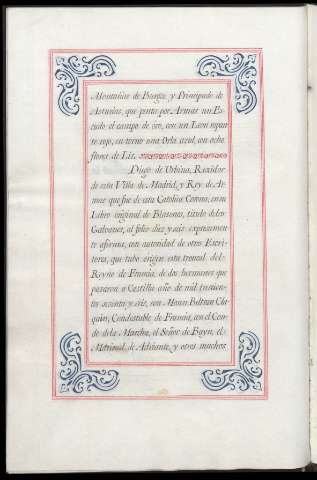 Montañas de Burgos, y Principado de
Asturias, que pinta por Armas un Es-
cudo el campo de oro, con un Leon rapan-
te rojo, en torno una Orla azul, con ocho
flores de Lis.
Diego de Urbina, Rexidor
de esta Villa de Madrid, y Rey de Ar-
mas que fue de esta Catolica Corona, en su
Libro original de Blasones, titulo delos
Galvanes, al folio diez y seis expresamen-
te afirma, con autoridad de otros Escri-
tores, que tubo origen este troncal del
Reyno de Francia, de dos hermanos que
pasaron a Castilla año de mil trescien-
tos sesenta y seis, con Mosen Beltran Cla-
quin, Condestable de Francia, con el Con-
de dela Marcha, el Señor de Bayn, el
Mariscal de Adriante, y otros muchos